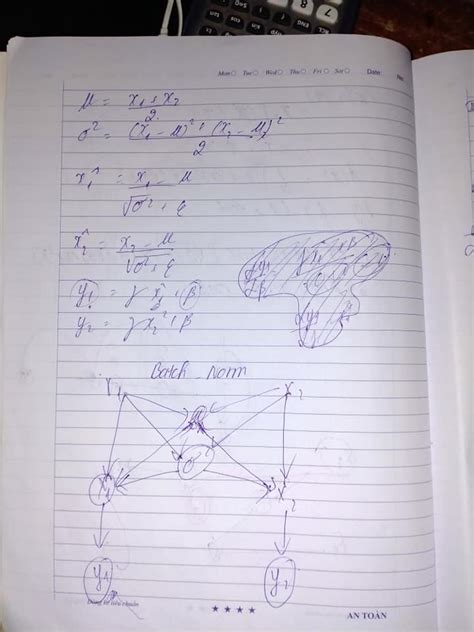 Mon Tue Wed Thu Fri Sat Date: No:
μ = x₁ + x₂ / 2
σ² = (x₁ - μ)² + (x₂ - μ)² / 2
x̂₁ = x₁ - μ / √σ² + ε
x̂₂ = x₂ - μ / √σ² + ε
y₁ = γ x̂ + β
y₂ = γ x̂₂ + β
Batch Norm
x₁ x₂
μ
σ²
x̂₁ x̂₂
y₁ y₂
★ ★ ★ ★ AN TOÀN